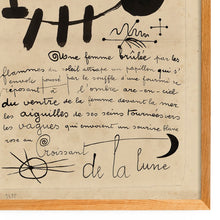 Une femme brûlée par les
flammes en soleil attrape un papillon qui s'
envole poussé par le souffle d'une fourmi se
reposant à l'ombre arc-en-ciel
du ventre de la femme devant la mer
les aiguilles de ses seins tournées vers
les vagues qui envoient un sourire blanc
rose au
Croissant
de la lune